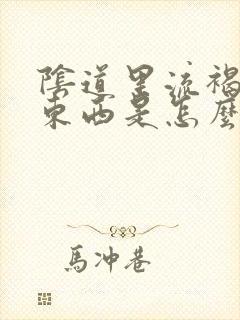 陰道里流褐
東西是怎麼
馬冲巷